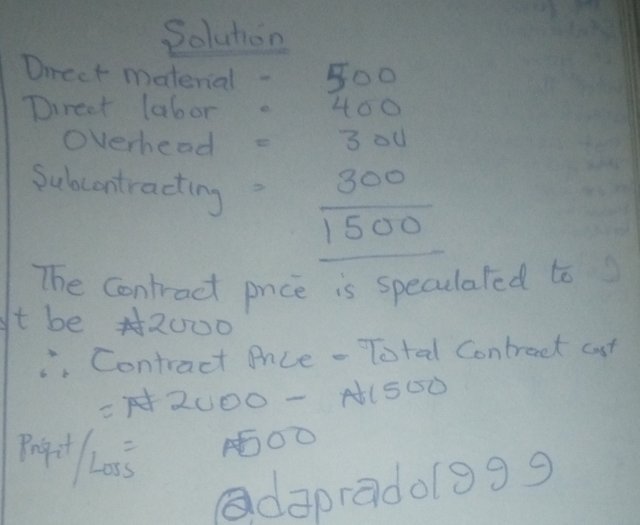 Solution
Direct material - 500
Direct labor = 400
Overhead = 300
Subcontracting = 300
1500
The contract price is speculated to
be ₦2000
∴ Contract Price - Total Contract cost
= ₦2000 - ₦1500
Profit/Loss = ₦500
@daprado1999